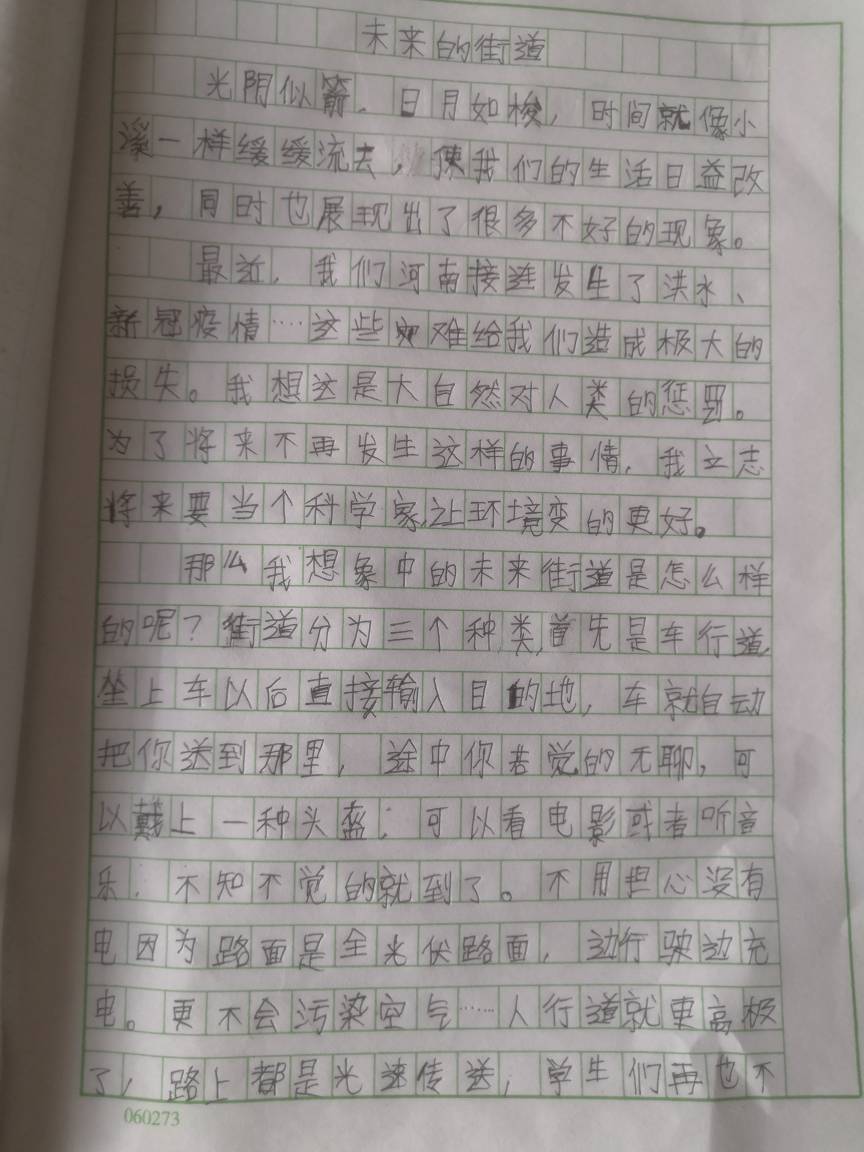 未来的街道
光阴似箭，日月如梭，时间就像小
溪一样缓缓流去，使我们的生活日益改
善，同时也展现出了很多不好的现象。
最近，我们河南接连发生了洪水、
新冠疫情……这些灾难给我们造成极大的
损失。我想这是大自然对人类的惩罚。
为了将来不再发生这样的事情，我立志
将来要当个科学家，让环境变的更好。
那么我想象中的未来街道是怎么样
的呢？街道分为三个种类，首先是车行道，
坐上车以后直接输入目的地，车就自动
把你送到那里，途中你若觉的无聊，可
以戴上一种头盔；可以看电影或者听音
乐，不知不觉的就到了。不用担心没有
电因为路面是全光伏路面，边行驶边充
电。更不会污染空气……人行道就更高极
了，路上都是光速传送，学生们再也不
060273